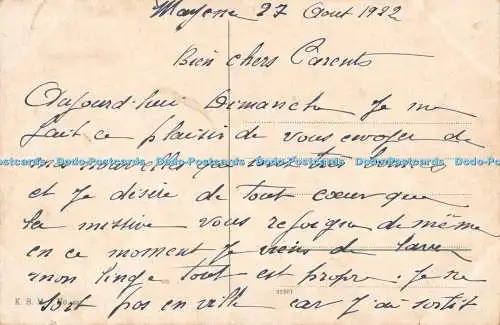 Mayence 27 Aout 1922
Bien chers Parents
Aujourd'hui Dimanche Je me
fait ce plaisir de vous envoyer de
mes nouvelles qui sont très bonnes
et Je désire de tout cœur que
la missive vous rejoigne de même
en ce moment Je viens de laver
mon linge tout est propre. Je ne
sort pas en ville car J'ai sortit
K. B. M.
Dodo-Postcards Dodo-Postcards Dodo-Postcards Dodo-Postcards Dodo-Postcards